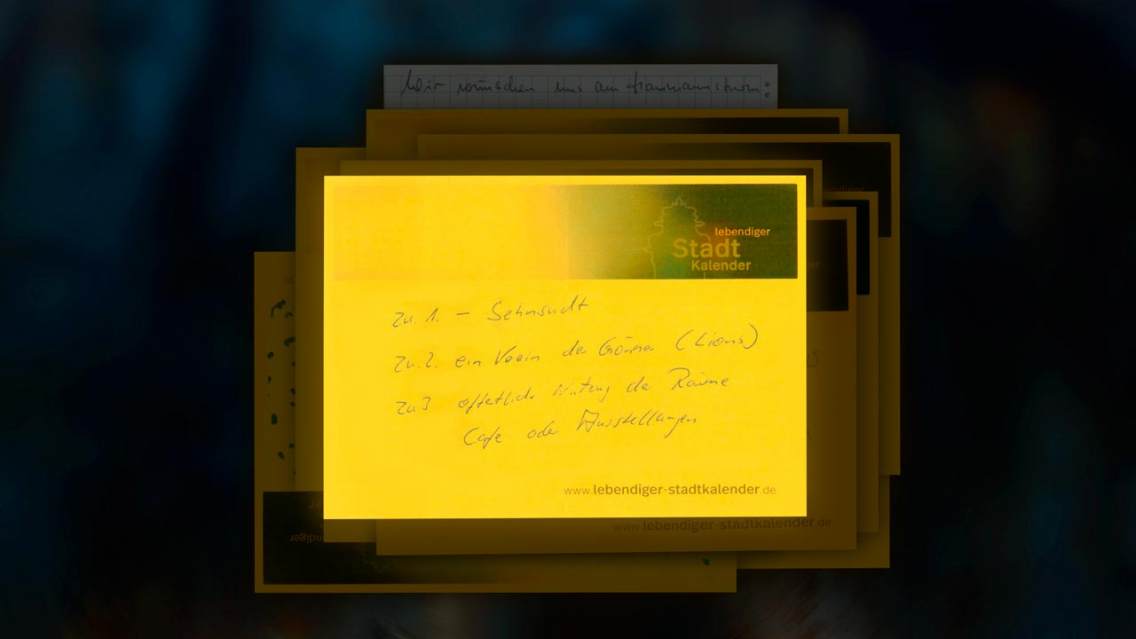 Wir wünschen uns am
lebendiger
Stadt
Kalender
zu 1. – Sehnsucht
zu 2. ein Verein der Gönner (Lions)
zu 3 öffentliche Nutzung der Räume
Cafe oder Ausstellungen
www.lebendiger-stadtkalender.de
www.lebendiger-stadtkalender.de